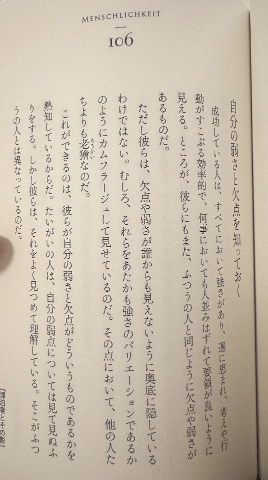 MENSCHLICHKEIT
106
自分の弱さと欠点を知っておく
成功している人は、すべてにおいて強さがあり、運に恵まれ、考えや行
動がすこぶる効率的で、何事においても人並みはずれて要領が良いように
見える。ところが、彼らにもまた、ふつうの人と同じように欠点や弱さが
あるものだ。
ただし彼らは、欠点や弱さが誰からも見えないように奥底に隠している
わけではない。むしろ、それらをあたかも強さのバリエーションであるか
のようにカムフラージュして見せているのだ。その点において、他の人た
ちよりも老獪なのだ。
ろうかい
これができるのは、彼らが自分の弱さと欠点がどういうものであるかを
熟知しているからだ。たいがいの人は、自分の弱点については見て見ぬふ
りをする。しかし彼らは、それをよく見つめて理解している。そこがふつ
うの人とは異なっているのだ。
『漂泊者とその影』